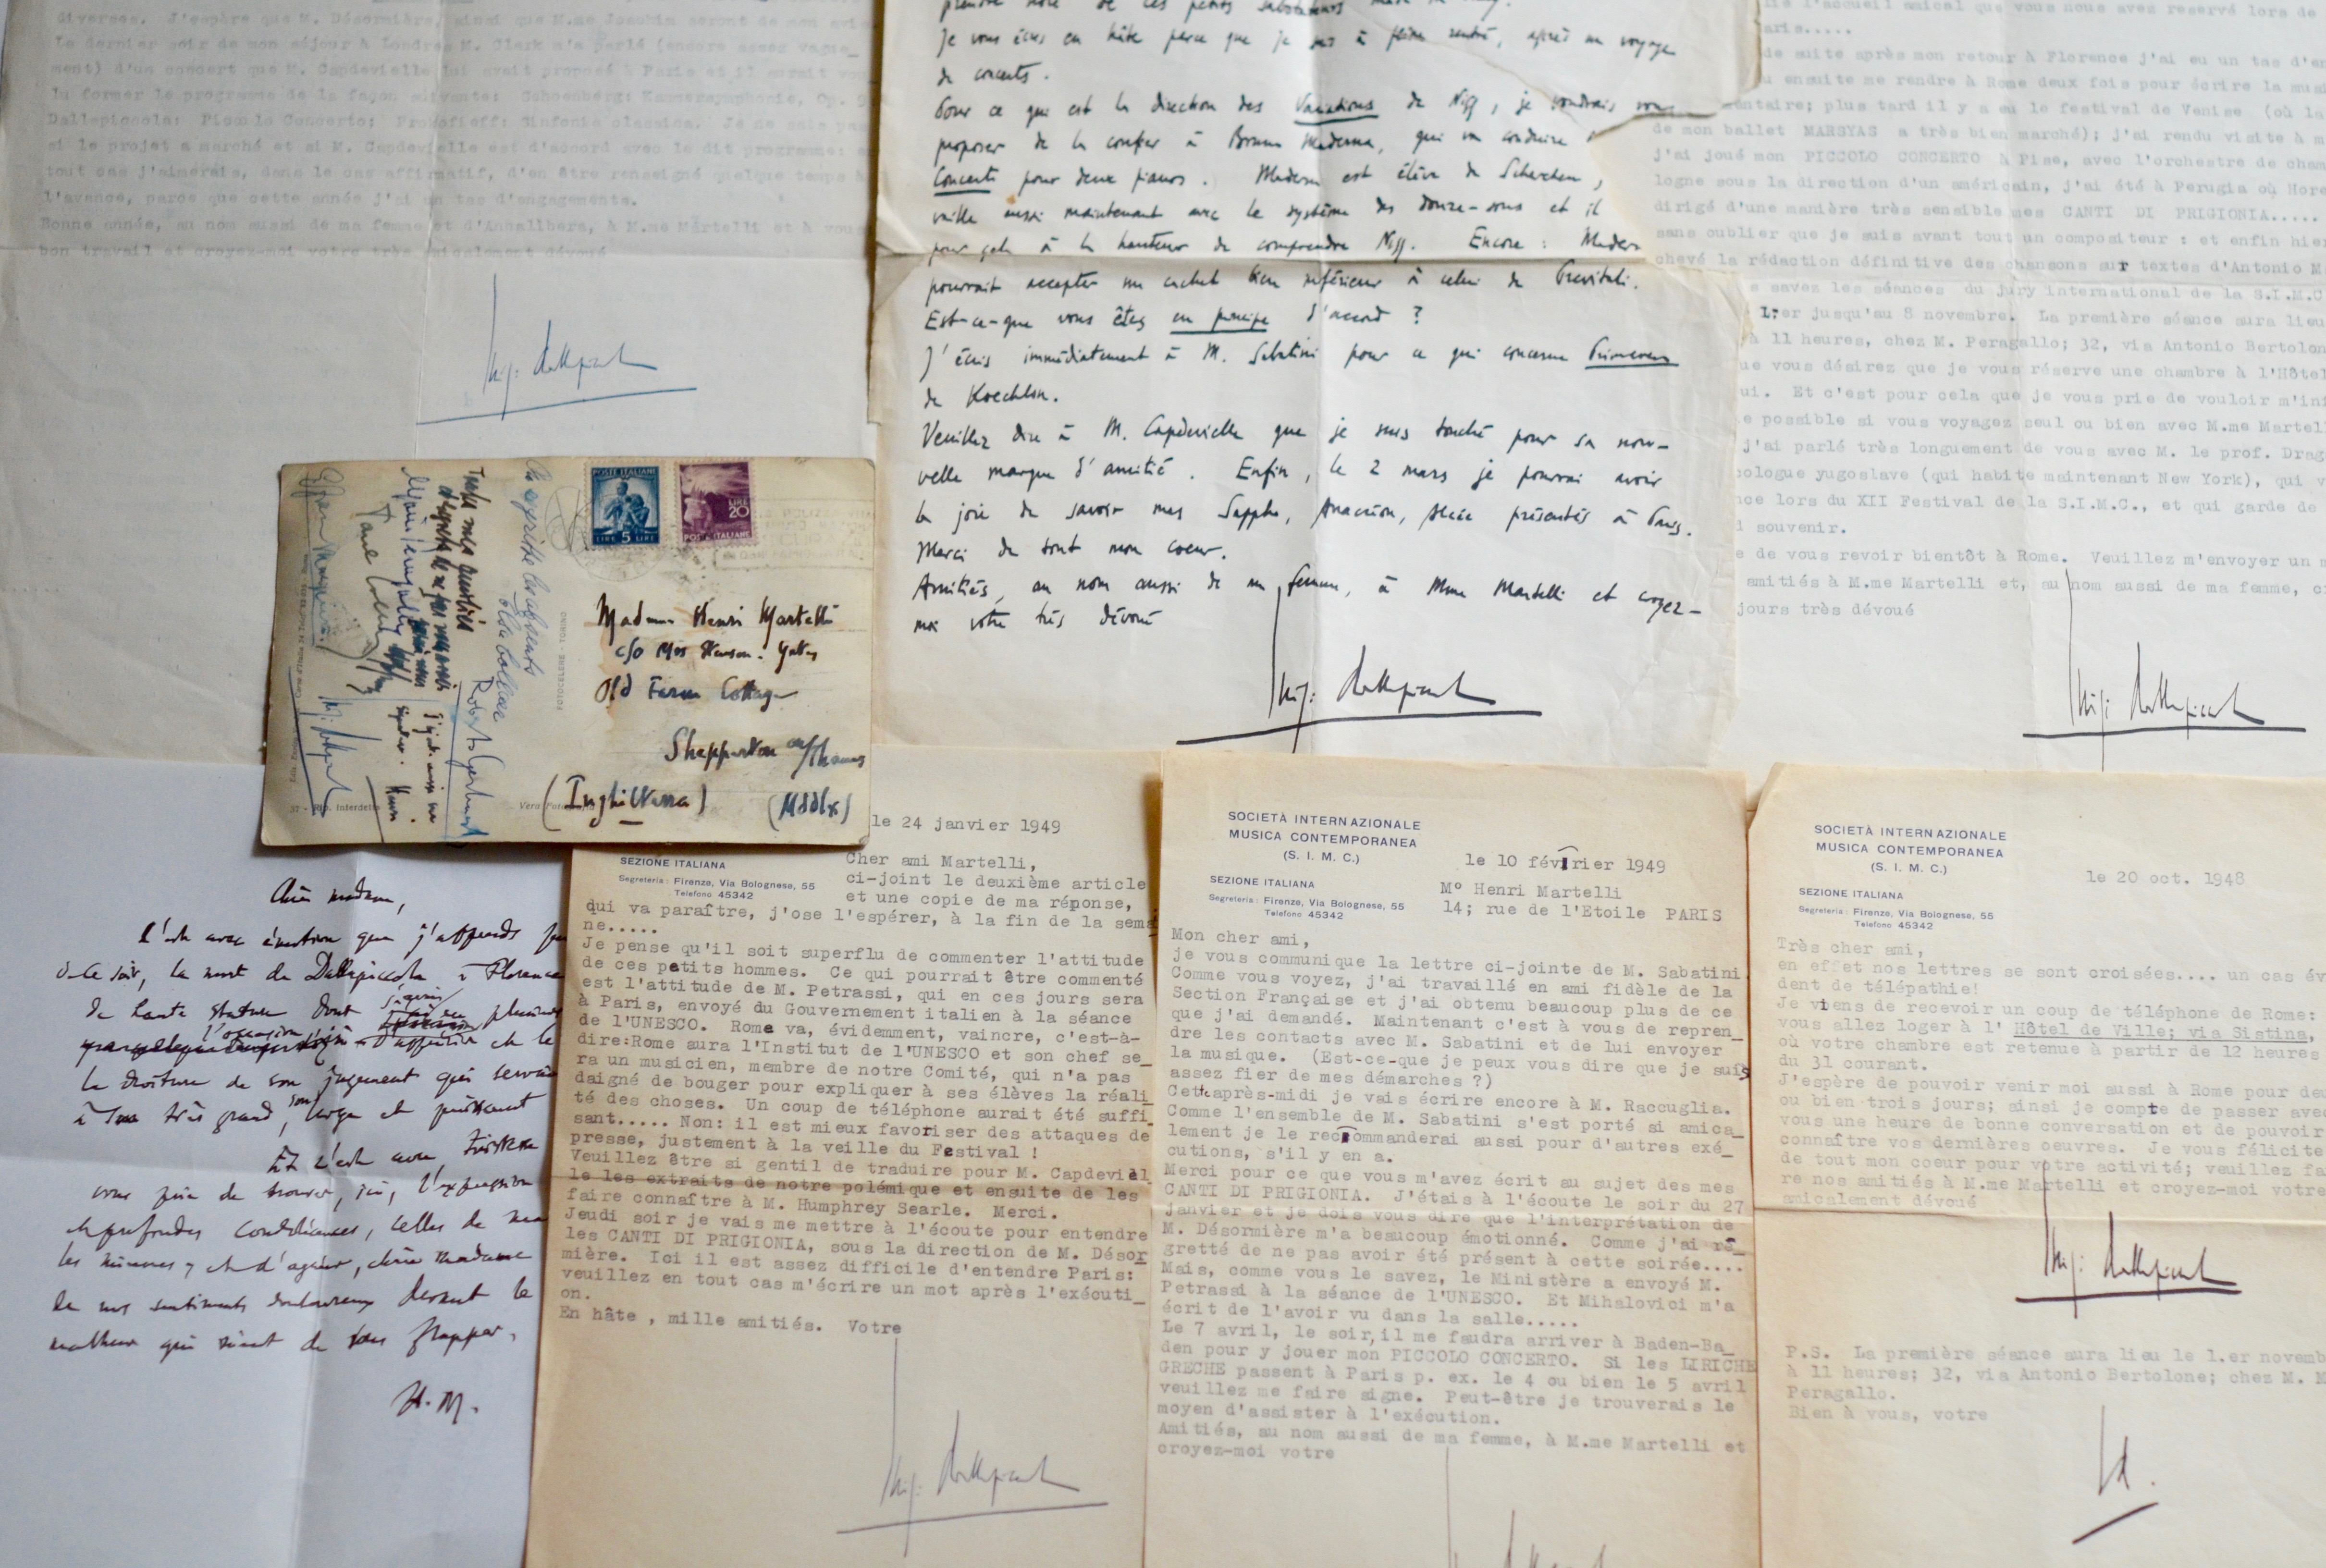 diverses. J'espère que M. Désormière, ainsi que M.me Joachim seront de mon avis
Le dernier soir de mon séjour à Londres M. Clark m'a parlé (encore assez vague_
ment) d'un concert que M. Capdevielle lui avait proposé à Paris et il aurait vou
lu former le programme de la façon suivante: Schoenberg: Kammersymphonie, Op. 9
Dallapiccola: Piccolo Concerto; Prokofieff: Sinfonie classica. Je ne sais pas
si le projet a marché et si M. Capdevielle est d'accord avec le dit programme: en
tout cas j'aimerais, dans le cas affirmatif, d'en être renseigné quelque temps à
l'avance, parce que cette année j'ai un tas d'engagements.
Bonne année, au nom aussi de ma femme et d'Annalibera, à M.me Martelli et à vous
bon travail et croyez-moi votre très amicalement dévoué
Luigi Dallapiccola
prendre note de ces petits
Je vous écris en hâte parce que je suis à peine rentré, après un voyage
de concerts.
Pour ce qui est la direction des Variations de Nigg, je voudrais vous
proposer de la confier à Bruno Maderna, qui va conduire
Concerto pour deux pianos. Maderna est élève de Scherchen,
vaille aussi maintenant avec le système des douze-sons et il
pour cela à la hauteur de comprendre Nigg. Encore: Mader
pourrait accepter un cachet bien inférieur à celui de Previtali.
Est-ce-que vous êtes en principe d'accord ?
J'écris immédiatement à M. Sabatini pour ce qui concerne Primavera
de Koechlin.
Veuillez dire à M. Capdevielle que je suis touché pour sa nou-
velle marque d'amitié. Enfin, le 2 mars je pourrai avoir
la joie de savoir mes Sappho, Anacréon, Alcée présentés à Paris.
Merci de tout mon coeur.
Amitiés, au nom aussi de ma femme, à Mme Martelli et croyez-
moi votre très dévoué
Luigi Dallapiccola
l'accueil amical que vous nous avez reservé lors de
aris.....
de suite après mon retour à Florence j'ai eu un tas d'en
u ensuite me rendre à Rome deux fois pour écrire la musi
mentaire; plus tard il y a eu le festival de Venise (où la
de mon ballet MARSYAS a très bien marché); j'ai rendu visite à m
j'ai joué mon PICCOLO CONCERTO à Pise, avec l'orchestre de cham
logne sous la direction d'un américain, j'ai été à Perugia où Hore
dirigé d'une manière très sensible mes CANTI DI PRIGIONIA.....
sans oublier que je suis avant tout un compositeur : et enfin hie
chevé la rédaction définitive des chansons sur textes d'Antonio M
s savez les séances du jury international de la S.I.M.C
1.er jusqu'au 8 novembre. La première séance aura lieu
à 11 heures, chez M. Peragallo; 32, via Antonio Bertolon
ue vous désirez que je vous réserve une chambre à l'Hôtel
ui. Et c'est pour cela que je vous prie de vouloir m'in
e possible si vous voyagez seul ou bien avec M.me Martel
j'ai parlé très longuement de vous avec M. le prof. Drag
ologue yugoslave (qui habite maintenant New York), qui v
nce lors du XII Festival de la S.I.M.C., et qui garde de
souvenir.
e de vous revoir bientôt à Rome. Veuillez m'envoyer un m
amitiés à M.me Martelli et, au nom aussi de ma femme, c
jours très dévoué
Luigi Dallapiccola
POSTE ITALIANE
LIRE 5 LIRE
LIRE
20
POSTE ITALIANE
Toutes mes amitiés
Paul Collaer
Elsa Collaer
Roberto Gerhard
FOTOCELERE - TORINO
Vera Foto
Rip. Interdetta
Madame Henri Martelli
c/o Mrs
Old Farm Cottage
Shepperton on/Thames
(Inghilterra) (Mddlx)
Chère madame,
C'est avec émotion que j'apprends
ce soir, la mort de Dallapiccola à Florence
de haute stature dont plusieurs
l'occasion d'apprécier et le
la droiture de son jugement qui servait
à son très grand, large et puissant
Et c'est avec tristesse
vous prie de trouver, ici, l'expression
et profondes condoléances, celles de ma
les miennes, et d'agréer, chère madame
de nos sentiments douloureux devant le
malheur qui vient de vous frapper.
H.M.
le 24 janvier 1949
SEZIONE ITALIANA
Segreteria: Firenze, Via Bolognese, 55
Telefono 45342
Cher ami Martelli,
ci-joint le deuxième article
et une copie de ma réponse,
qui va paraître, j'ose l'espérer, à la fin de la sema
ne.....
Je pense qu'il soit superflu de commenter l'attitude
de ces petits hommes. Ce qui pourrait être commenté
est l'attitude de M. Petrassi, qui en ces jours sera
à Paris, envoyé du Gouvernement italien à la séance
de l'UNESCO. Rome va, évidemment, vaincre, c'est-à-
dire:Rome aura l'Institut de l'UNESCO et son chef se_
ra un musicien, membre de notre Comité, qui n'a pas
daigné de bouger pour expliquer à ses élèves la réali_
té des choses. Un coup de téléphone aurait été suffi_
sant..... Non: il est mieux favoriser des attaques de
presse, justement à la veille du Festival !
Veuillez être si gentil de traduire pour M. Capdeviel
le les extraits de notre polémique et ensuite de les
faire connaître à M. Humphrey Searle. Merci.
Jeudi soir je vais me mettre à l'écoute pour entendre
les CANTI DI PRIGIONIA, sous la direction de M. Désor
mière. Ici il est assez difficile d'entendre Paris:
veuillez en tout cas m'écrire un mot après l'exécuti_
on.
En hâte , mille amitiés. Votre
Luigi Dallapiccola
SOCIETÀ INTERNAZIONALE
MUSICA CONTEMPORANEA
(S. I. M. C.)
SEZIONE ITALIANA
Segreteria: Firenze, Via Bolognese, 55
Telefono 45342
le 10 février 1949
M° Henri Martelli
14; rue de l'Etoile PARIS
Mon cher ami,
je vous communique la lettre ci-jointe de M. Sabatini
Comme vous voyez, j'ai travaillé en ami fidèle de la
Section Française et j'ai obtenu beaucoup plus de ce
que j'ai demandé. Maintenant c'est à vous de repren_
dre les contacts avec M. Sabatini et de lui envoyer
la musique. (Est-ce-que je peux vous dire que je suis
assez fier de mes démarches ?)
Cett après-midi je vais écrire encore à M. Raccuglia.
Comme l'ensemble de M. Sabatini s'est porté si amica_
lement je le recommanderai aussi pour d'autres exé_
cutions, s'il y en a.
Merci pour ce que vous m'avez écrit au sujet des mes
CANTI DI PRIGIONIA. J'étais à l'écoute le soir du 27
janvier et je dois vous dire que l'interprétation de
M. Désormière m'a beaucoup émotionné. Comme j'ai re_
gretté de ne pas avoir été présent à cette soirée....
Mais, comme vous le savez, le Ministère a envoyé M.
Petrassi à la séance de l'UNESCO. Et Mihalovici m'a
écrit de l'avoir vu dans la salle.....
Le 7 avril, le soir,il me faudra arriver à Baden-Ba_
den pour y jouer mon PICCOLO CONCERTO. Si les LIRICHE
GRECHE passent à Paris p. ex. le 4 ou bien le 5 avril
veuillez me faire signe. Peut-être je trouverais le
moyen d'assister à l'exécution.
Amitiés, au nom aussi de ma femme, à M.me Martelli et
croyez-moi votre
SOCIETÀ INTERNAZIONALE
MUSICA CONTEMPORANEA
(S. I. M. C.)
SEZIONE ITALIANA
Segreteria: Firenze, Via Bolognese, 55
Telefono 45342
le 20 oct. 1948
Très cher ami,
en effet nos lettres se sont croisées.... un cas év
dent de télépathie!
Je viens de recevoir un coup de téléphone de Rome:
vous allez loger à l' Hôtel de Ville; via Sistina,
où votre chambre est retenue à partir de 12 heures
du 31 courant.
J'espère de pouvoir venir moi aussi à Rome pour deu
ou bien trois jours; ainsi je compte de passer avec
vous une heure de bonne conversation et de pouvoir
connaître vos dernières oeuvres. Je vous félicite
de tout mon coeur pour votre activité; veuillez fa
re nos amitiés à M.me Martelli et croyez-moi votre
amicalement dévoué
Luigi Dallapiccola
P.S. La première séance aura lieu le 1.er novemb
à 11 heures; 32, via Antonio Bertolone; chez M. M
Peragallo.
Bien à vous, votre